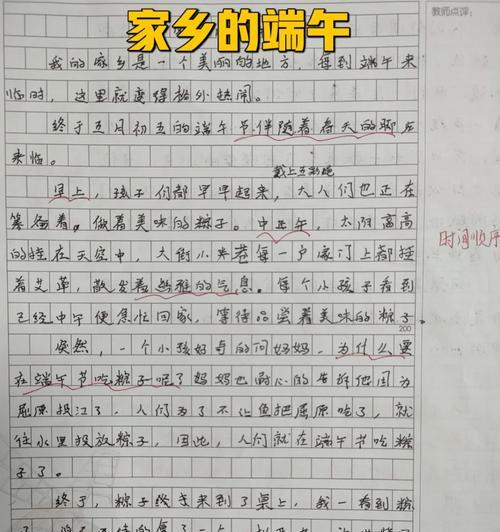 家乡的端午
教师点评:
我的家乡是一个美丽的地方,每到端午来
临时,这里就变得格外热闹。
终于五月初五的端午节伴随着春天的脚步
来临。
戴上五彩绳
早上,孩子们都早早起来,大人们也正在
筹备着,做着美味的粽子。中正午,太阳高高
的挂在天空中,大街小巷每一户家门上都挂
着艾草,散发着幽雅的气息。每个小孩子看到
时间顺序
已经中午便急忙回家,等待品尝着美味的粽子。
200
突然,一个小孩好奇的问妈妈,为什么要
在端午节吃粽子呢?妈妈也耐心的告诉他因为
屈原投江了,人们为了不让鱼把屈原吃了,就
往水里投放粽子,因此,人们就在端午节吃粽
子了。
终于,粽子终于来到了桌上,我一看到粽